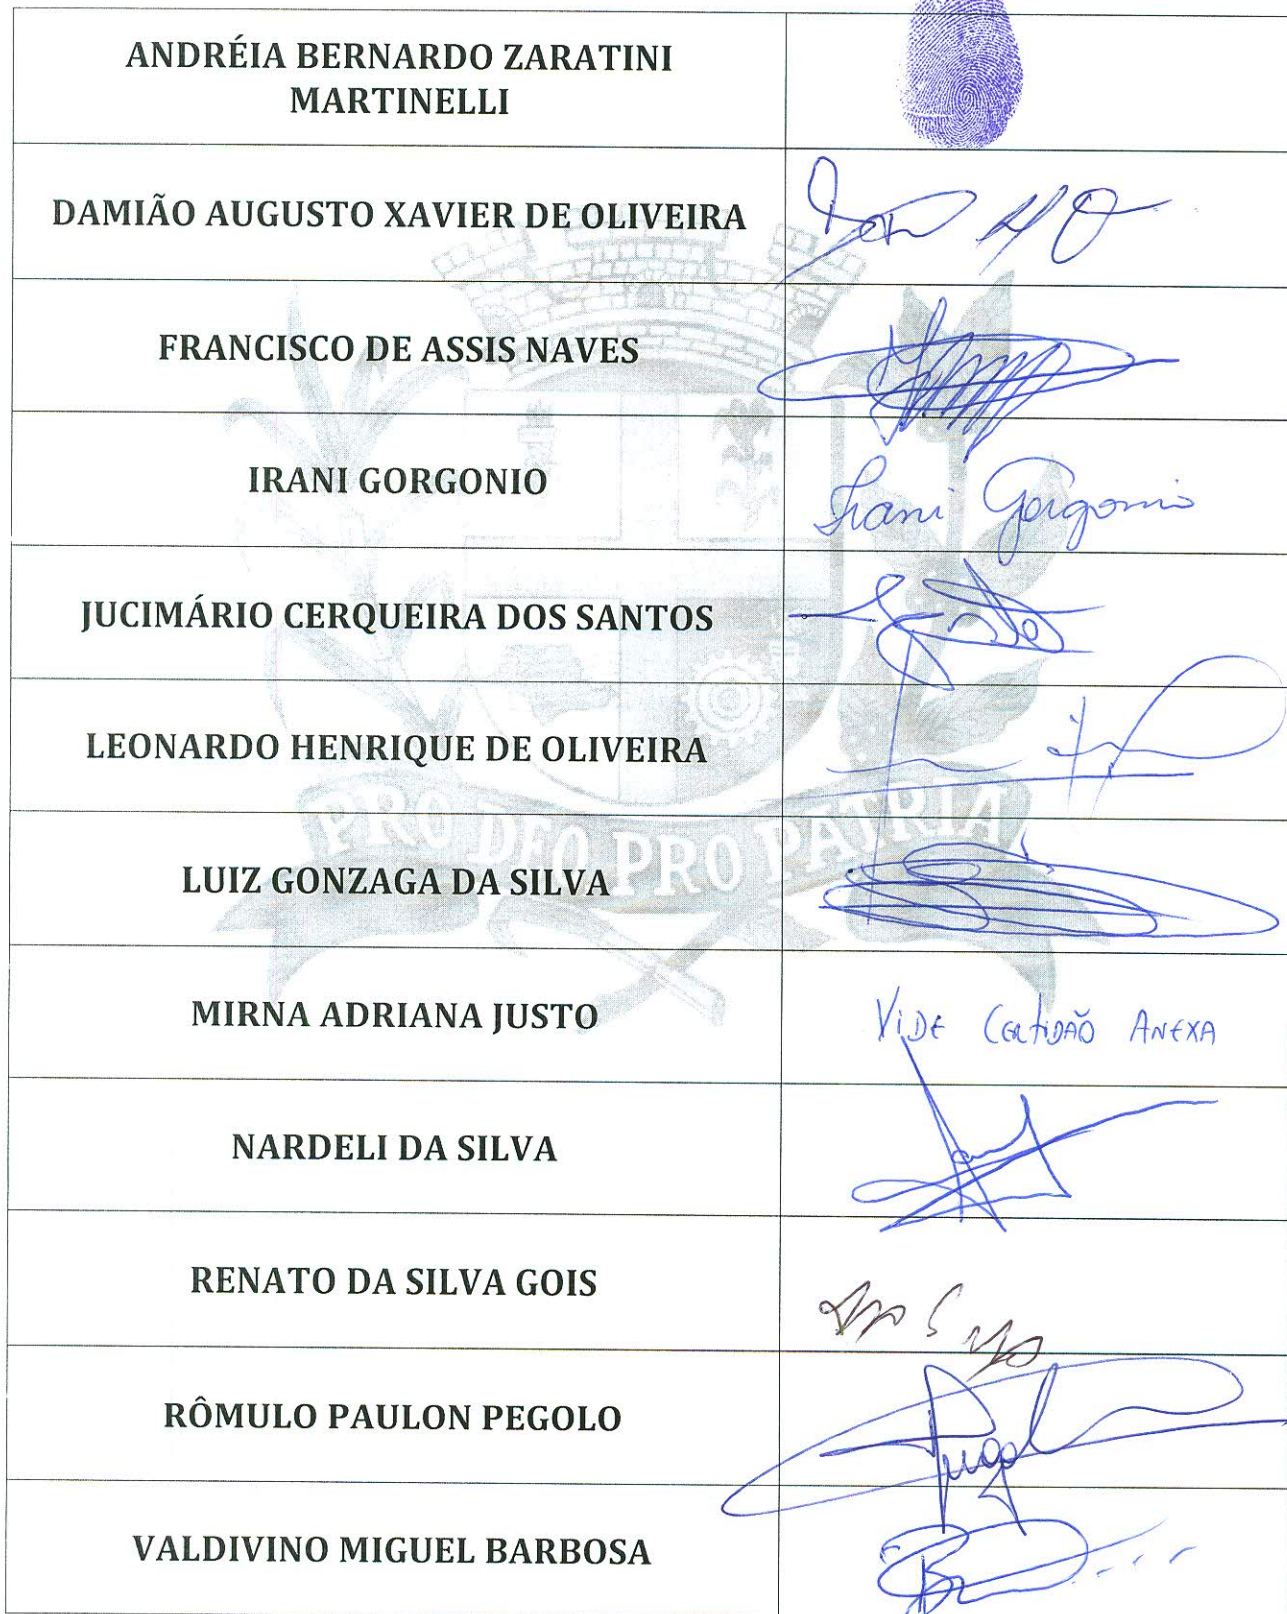 ANDRÉIA BERNARDO ZARATINI
MARTINELLI
DAMIÃO AUGUSTO XAVIER DE OLIVEIRA
FRANCISCO DE ASSIS NAVES
IRANI GORGONIO
Irani Gorgonio
JUCIMÁRIO CERQUEIRA DOS SANTOS
LEONARDO HENRIQUE DE OLIVEIRA
PRO DEO PRO PATRIA
LUIZ GONZAGA DA SILVA
MIRNA ADRIANA JUSTO
VIDE CERTIDÃO ANEXA
NARDELI DA SILVA
RENATO DA SILVA GOIS
RÔMULO PAULON PEGOLO
VALDIVINO MIGUEL BARBOSA